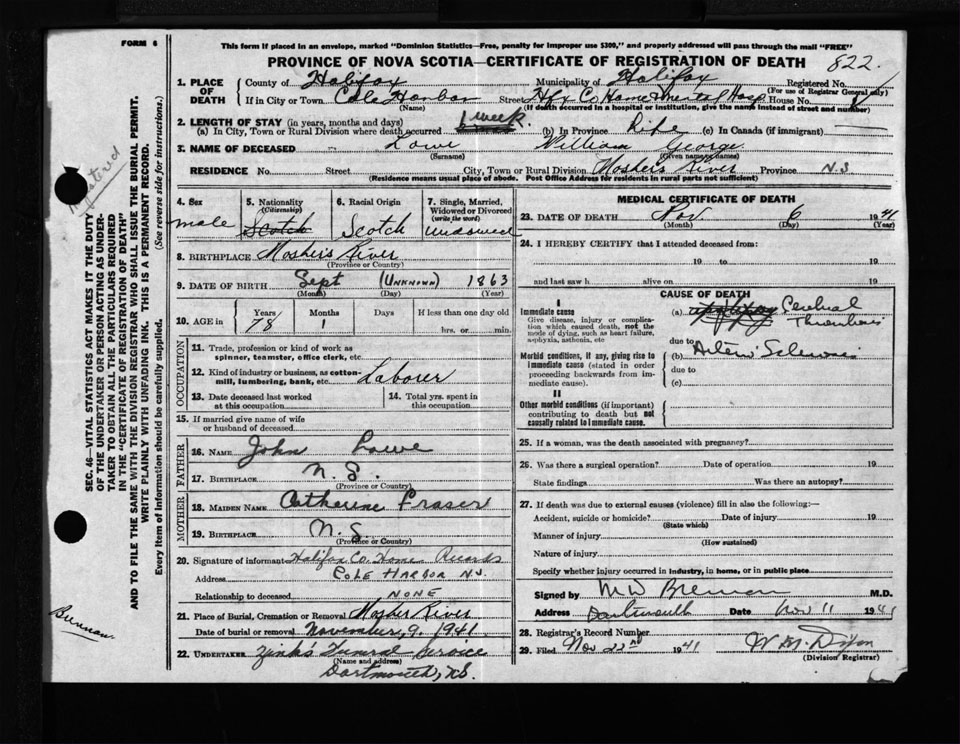 FORM 6
This form if placed in an envelope, marked "Dominion Statistics—Free, penalty for improper use $300," and properly addressed will pass through the mail "FREE"
PROVINCE OF NOVA SCOTIA—CERTIFICATE OF REGISTRATION OF DEATH 822.
1. PLACE OF DEATH
County of Halifax Municipality of Halifax Registered No.
(Name) (For use of Registrar General only)
If in City or Town Cole Harbor Street Hfx Co Home Mental Hosp House No.
(If death occurred in a hospital or institution, give the name instead of street and number)
2. LENGTH OF STAY (in years, months and days)
(a) In City, Town or Rural Division where death occurred 1 week (b) In Province Life (c) In Canada (if immigrant)
3. NAME OF DECEASED Lowe William George
(Surname) (Given name or names)
RESIDENCE No. Street City, Town or Rural Division Moshers River Province N.S
(Residence means usual place of abode. Post Office Address for residents in rural parts not sufficient)
4. Sex male
5. Nationality (Citizenship) Scotch
6. Racial Origin Scotch
7. Single, Married, Widowed or Divorced (write the word) Widowed
8. BIRTHPLACE Moshers River
(Province or Country)
9. DATE OF BIRTH Sept (UNKNOWN) 1863
(Month) (Day) (Year)
10. AGE in Years 78 Months 1 Days If less than one day old
hrs. or min.
OCCUPATION
11. Trade, profession or kind of work as
spinner, teamster, office clerk, etc.
12. Kind of industry or business, as cotton-
mill, lumbering, bank, etc. Laborer
13. Date deceased last worked
at this occupation
14. Total yrs. spent in
this occupation
15. If married give name of wife
or husband of deceased
FATHER
16. NAME John Lowe
17. BIRTHPLACE N.S.
(Province or Country)
MOTHER
18. MAIDEN NAME Catherine Fraser
19. BIRTHPLACE N.S.
(Province or Country)
20. Signature of informant Halifax Co. Home Records
Address COLE HARBOR N.S.
Relationship to deceased NONE
21. Place of Burial, Cremation or Removal Mosher River
Date of burial or removal November, 9. 1941
22. UNDERTAKER Zink's Funeral Service
(Name and address)
Dartmouth, N.S.
MEDICAL CERTIFICATE OF DEATH
23. DATE OF DEATH Nov. 6 1941
(Month) (Day) (Year)
24. I HEREBY CERTIFY that I attended deceased from:
19 to 19
and last saw h alive on 19
CAUSE OF DEATH
I
Immediate cause
Give disease, injury or complica-
tion which caused death, not the
mode of dying, such as heart failure,
asphyxia, asthenia, etc
(a) Cerebral
Thrombosis
due to
Morbid conditions, if any, giving rise to
immediate cause (stated in order
proceeding backwards from im-
mediate cause).
(b) Arterio Sclerosis
due to
(c)
II
Other morbid conditions (if important)
contributing to death but not
causally related to immediate cause.
25. If a woman, was the death associated with pregnancy?
26. Was there a surgical operation? Date of operation 19
State findings Was there an autopsy?
27. If death was due to external causes (violence) fill in also the following:
Accident, suicide or homicide? Date of injury 19
(State which)
Manner of injury
(How sustained)
Nature of injury
Specify whether injury occurred in industry, in home, or in public place
Signed by M.D.
Address Dartmouth Date Nov 11 1941
28. Registrar's Record Number
29. Filed Nov 22nd 1941
(Division Registrar)
SEC. 46—VITAL STATISTICS ACT MAKES IT THE DUTY
OF THE UNDERTAKER OR PERSON ACTING AS UNDER-
TAKER TO OBTAIN ALL THE PARTICULARS REQUIRED
IN THE "CERTIFICATE OF REGISTRATION OF DEATH"
AND TO FILE THE SAME WITH THE DIVISION REGISTRAR WHO SHALL ISSUE THE BURIAL PERMIT.
WRITE PLAINLY WITH UNFADING INK. THIS IS A PERMANENT RECORD.
Every item of information should be carefully supplied. (See reverse side for instructions.)
Registered